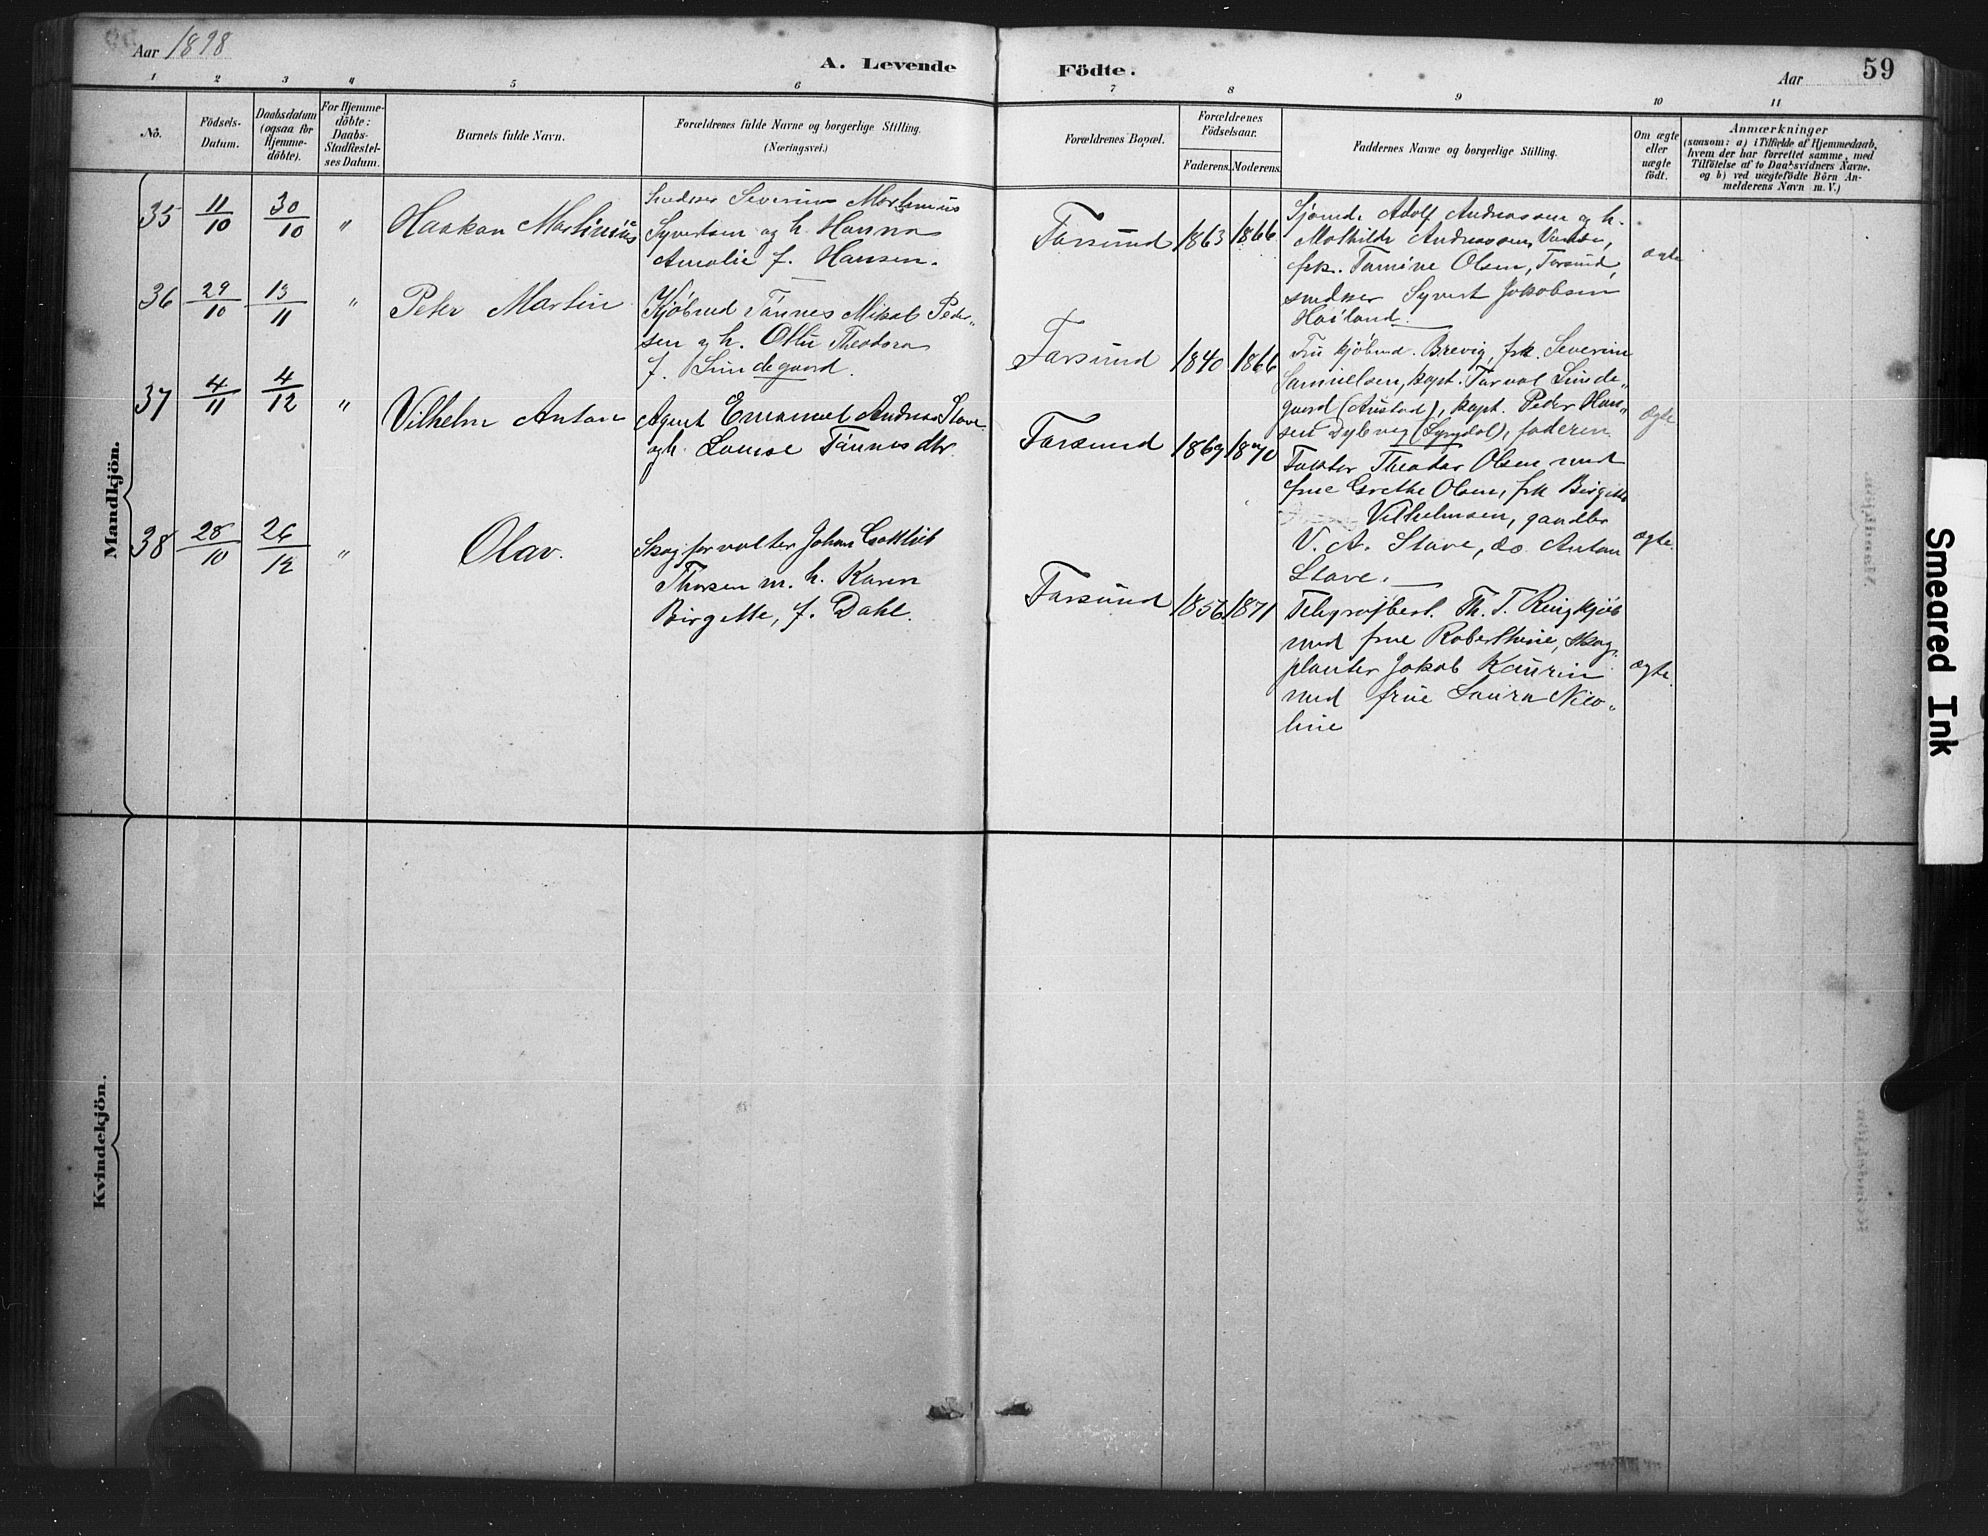 Aar 1898
A. Levende
Födte.
Aar
59
1 2 3 4 5 6 7 8 9 10 11
No.
Födsels-
Datum.
Daabsdatum
(ogsaa for
Hjemme-
döbte).
For Hjemme-
döbte:
Daabs-
Stadfæstel-
ses Datum.
Barnets fulde Navn.
Forældrenes fulde Navne og borgerlige Stilling.
(Næringsvei.)
Forældrenes Bopæl.
Forældrenes
Födselsaar.
Faderens. Moderens.
Faddernes Navne og borgerlige Stilling.
Om ægte
eller
uægte
födt.
Anmærkninger
(saasom: a) i Tilfælde af Hjemmedaab,
hvem der har forrettet samme, med
Tilföielse af to Daabsvidners Navne,
og b) ved uægtefödte Börn An-
melderens Navn m. V.)
Mandkjön.
35 11/10 30/10 "
Haakon Martinius
Severin Martinius
Syvertsen og h. Hanna
Amalie f. Hansen.
Farsund 1863 1866
Sjömd. Adolf Andreassen og h.
Mathilde Andreassen, Vanse,
frk. Tomine Olsen, Farsund,
Syvert Jakobsen
Haöland.
ægte
36 29/10 13/11 "
Peter Martin
Kjöbmd Tönnes Mikal Peder-
sen og h. Theodora
f. Lundegaard.
Farsund 1840 1866
Fru kjöbmd. Brevig, frk. Severine
Samuelsen, kapt. Torval Linde-
gaard (Austad), kapt. Peder Han-
sen Dybvig (Lyngdal), faderen
ægte
37 4/11 4/12 "
Vilhelm Anton
Agent Emanuel Andreas Stave
og h. Louise Tönnesdtr.
Farsund 1869 1870
Theodor Olsen med
frue Grethe Olsen, frk Birgitte
Vilhelmsen,
V. A. Stave, do. Anton
Stave.
ægte.
38 28/10 26/12 "
Olav.
Skogforvalter Johan Gottlieb
Thorsen m. h. Karen
Birgette, f. Dahl.
Farsund 1856 1871
Telegrafbest. Th. T. Ringkjöb
med frue Roberthine, skog-
planter Jakob Kaurin
med frue Laura Nico-
line
ægte.
Kvindekjön.
Smeared Ink